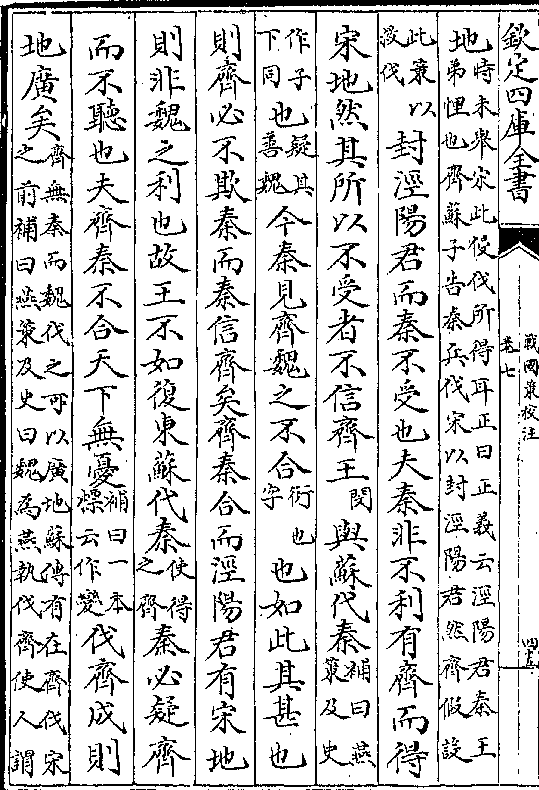 欽定四庫全書
戰國策校注
卷七
地時未舉宋此侵伐所得耳正曰正義云涇陽君秦王弟悝也齊蘇子告秦共伐宋以封涇陽君然齊假設
此策以伐封涇陽君而秦不受也夫秦非不利有齊而得
宋地然其所以不受者不信齊王閔與蘇代秦補曰燕策及史
作子下同也疑其善魏今秦見齊魏之不合衍也字也如此其甚也
則齊必不欺秦而秦信齊矣齊秦合而涇陽君有宋地
則非魏之利也故王不如復東蘇代秦使得之齊秦必疑齊
而不聽也夫齊秦不合天下無憂補曰一本云作變伐齊成則
地廣矣齊無秦而魏伐之可以廣地蘇傳有在齊伐宋之前補曰燕策及史曰魏為燕執伐齊使人謂